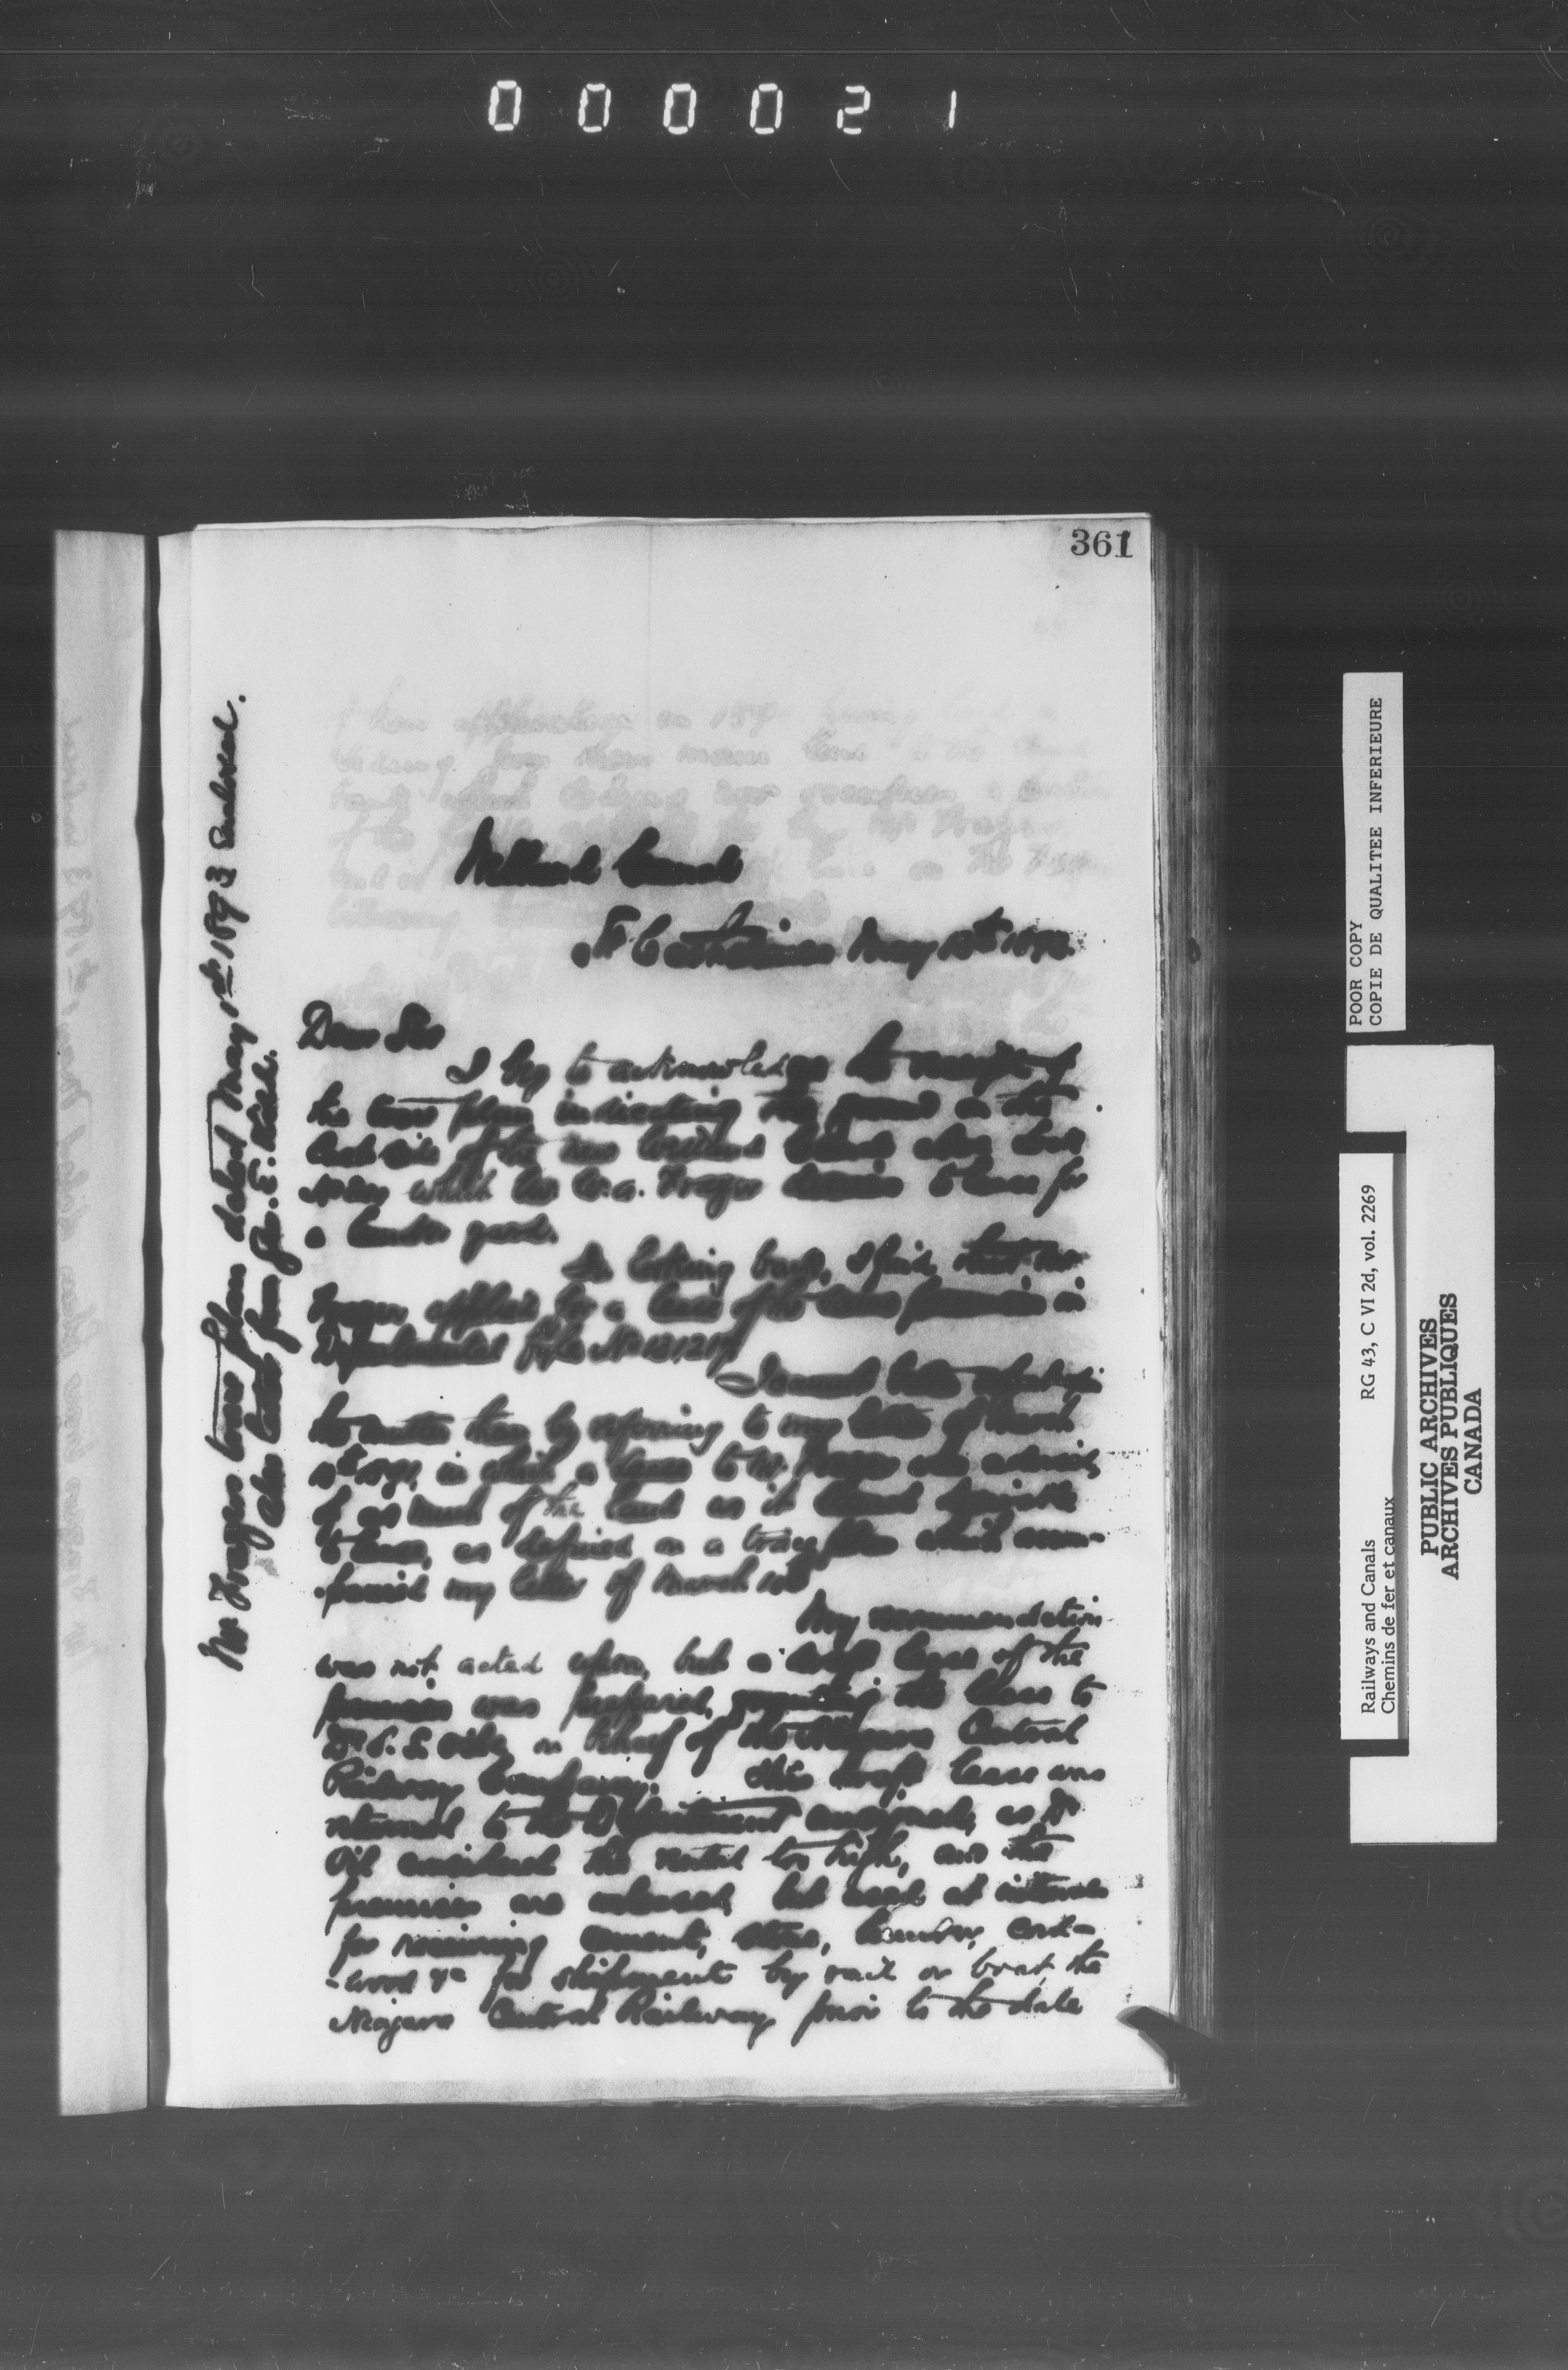 000021
361
Welland Canal
St Catharines May 13th 1893.
Dear Sir
I beg to acknowledge the receipt of
the trace plan indicating the ground on the
East side of the new Welland Canal above Lock
No which Mr. W. A. Frazer desires to lease for
a lumber yard.
In looking back, I find that Mr
Frazer applied for a lease of the same premises in
Departmental File No 131219
I cannot better
the matter than by referring to my letter of March
in which a lease to Mr. Frazer was advised,
of as much of the land as it
to lease, as defined on a tracing plan which accom-
-panied my letter of March 10th
My recommendation
was not acted upon, but a draft lease of the
premises was prepared, granting the lease to
Dr. L. Oille on behalf of the Niagara Central
Railway Company. This draft lease was
returned to the Department unsigned, as Dr
Oille considered the rental too high, and the
premises are unleased, but used at intervals
for receiving cement, stone, lumber, cord-
-wood &c for shipment by rail or boat, the
Niagara Central Railway prior to the date
Mr Frazers trace plan dated May 1st 1893 Enclosed.
also letter from Jno. E.
POOR COPY
COPIE DE QUALITEE INFERIEURE
Railways and Canals RG 43, C VI 2d, vol. 2269
Chemins de fer et canaux
PUBLIC ARCHIVES
ARCHIVES PUBLIQUES
CANADA